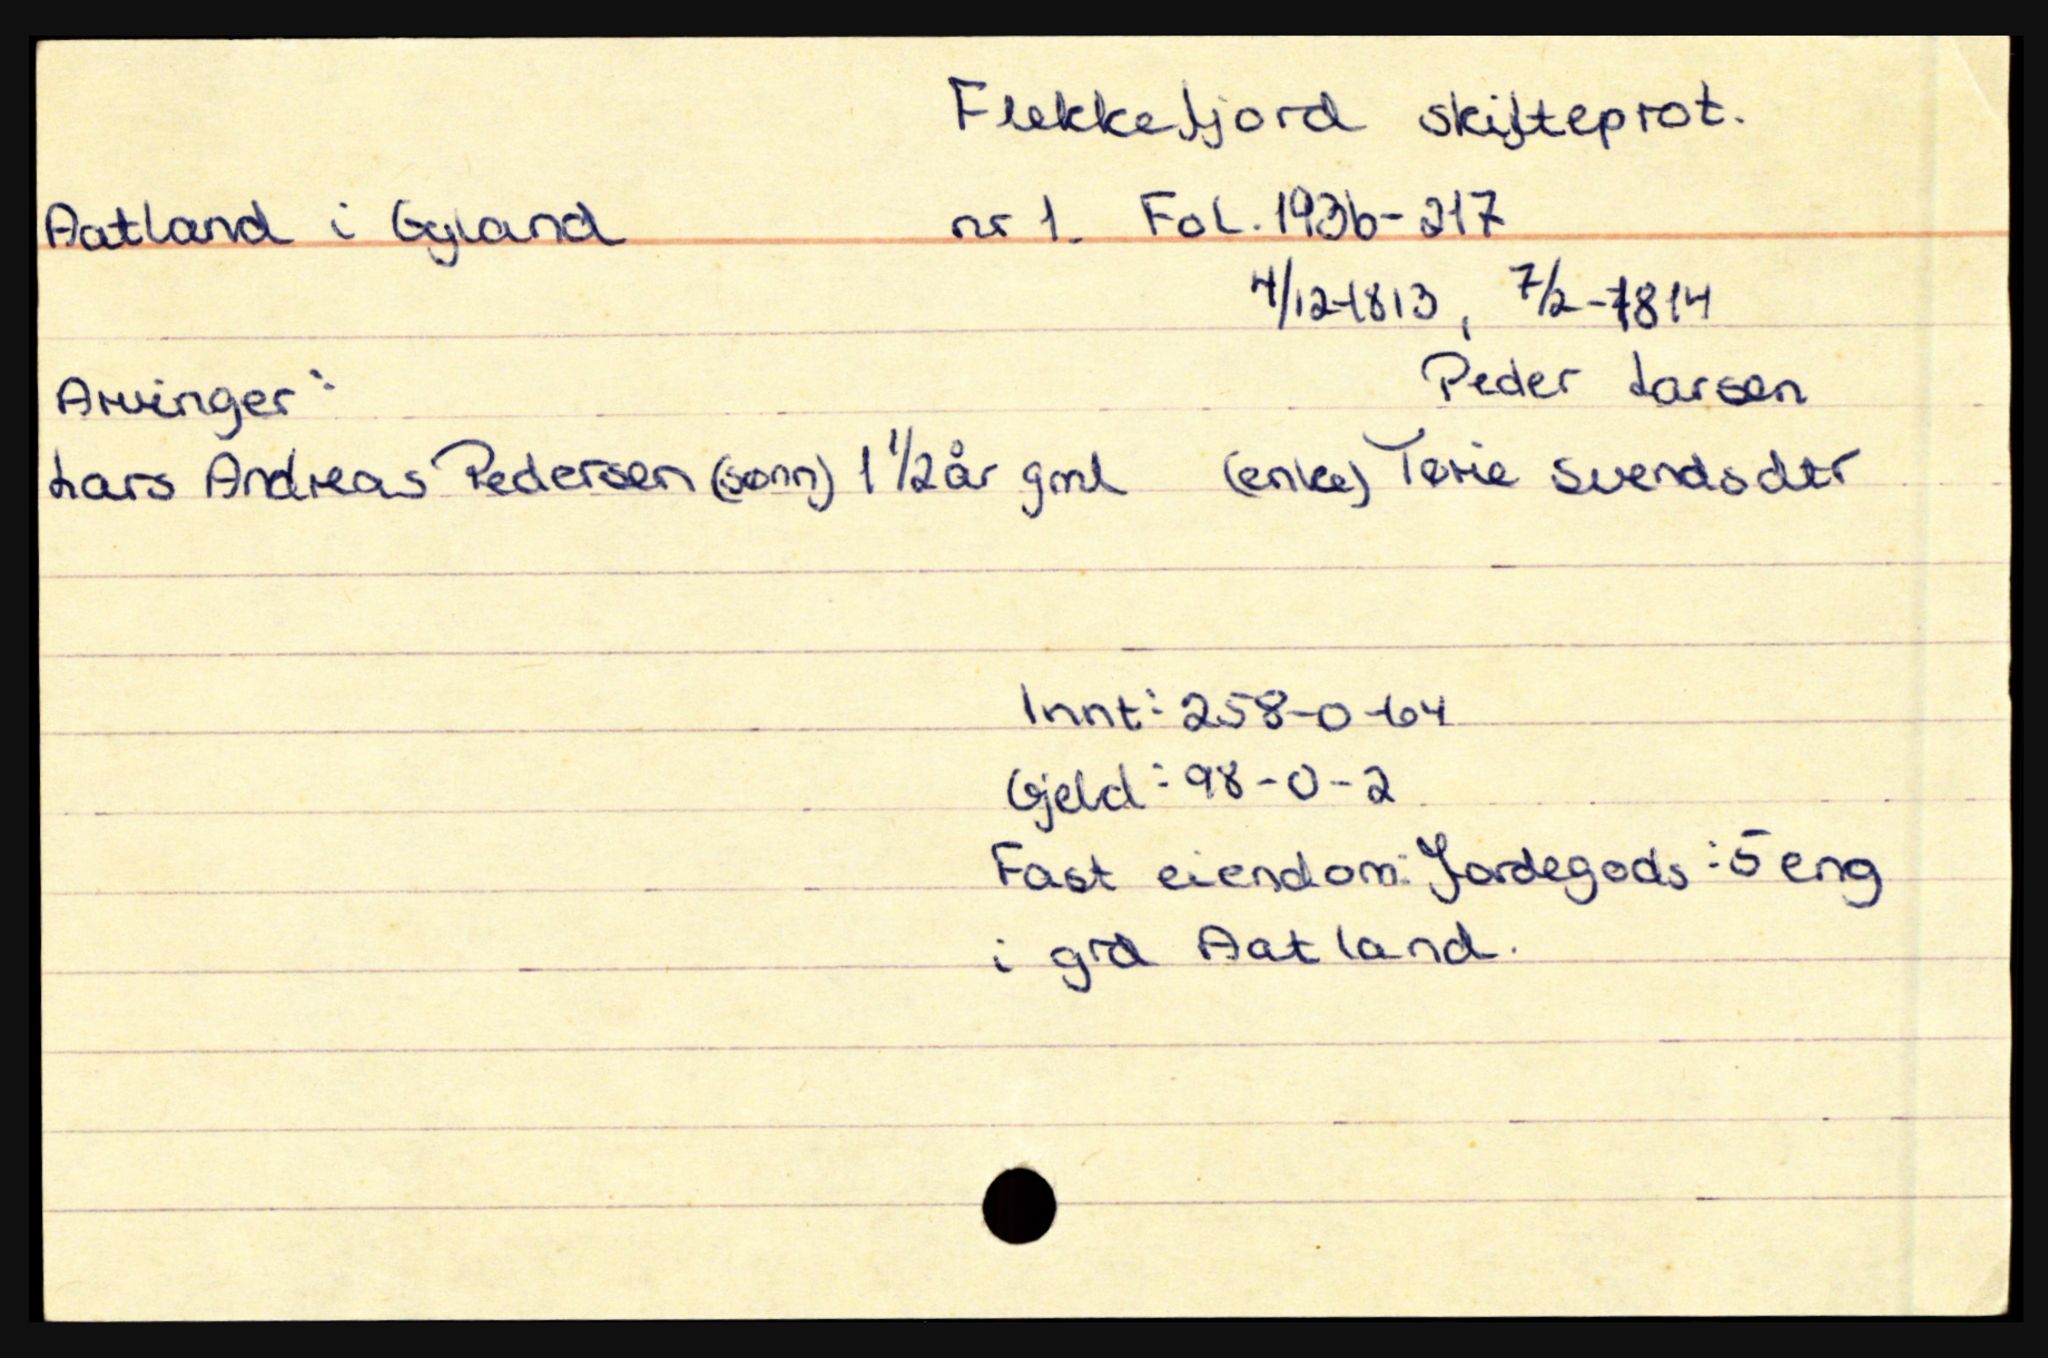 Flekkefjord skifteprot.
Aatland i Gyland nr 1. Fol. 193b-217
4/12-1813, 7/2-1814
Arvinger: Peder Larsen
Lars Andreas Pedersen (sønn) 1 1/2 år gml (enke) Tørie Svendsdtr
Innt: 258-0-64
Gjeld: 98-0-2
Fast eiendom: Jordegods: 5 eng
i grd Aatland.